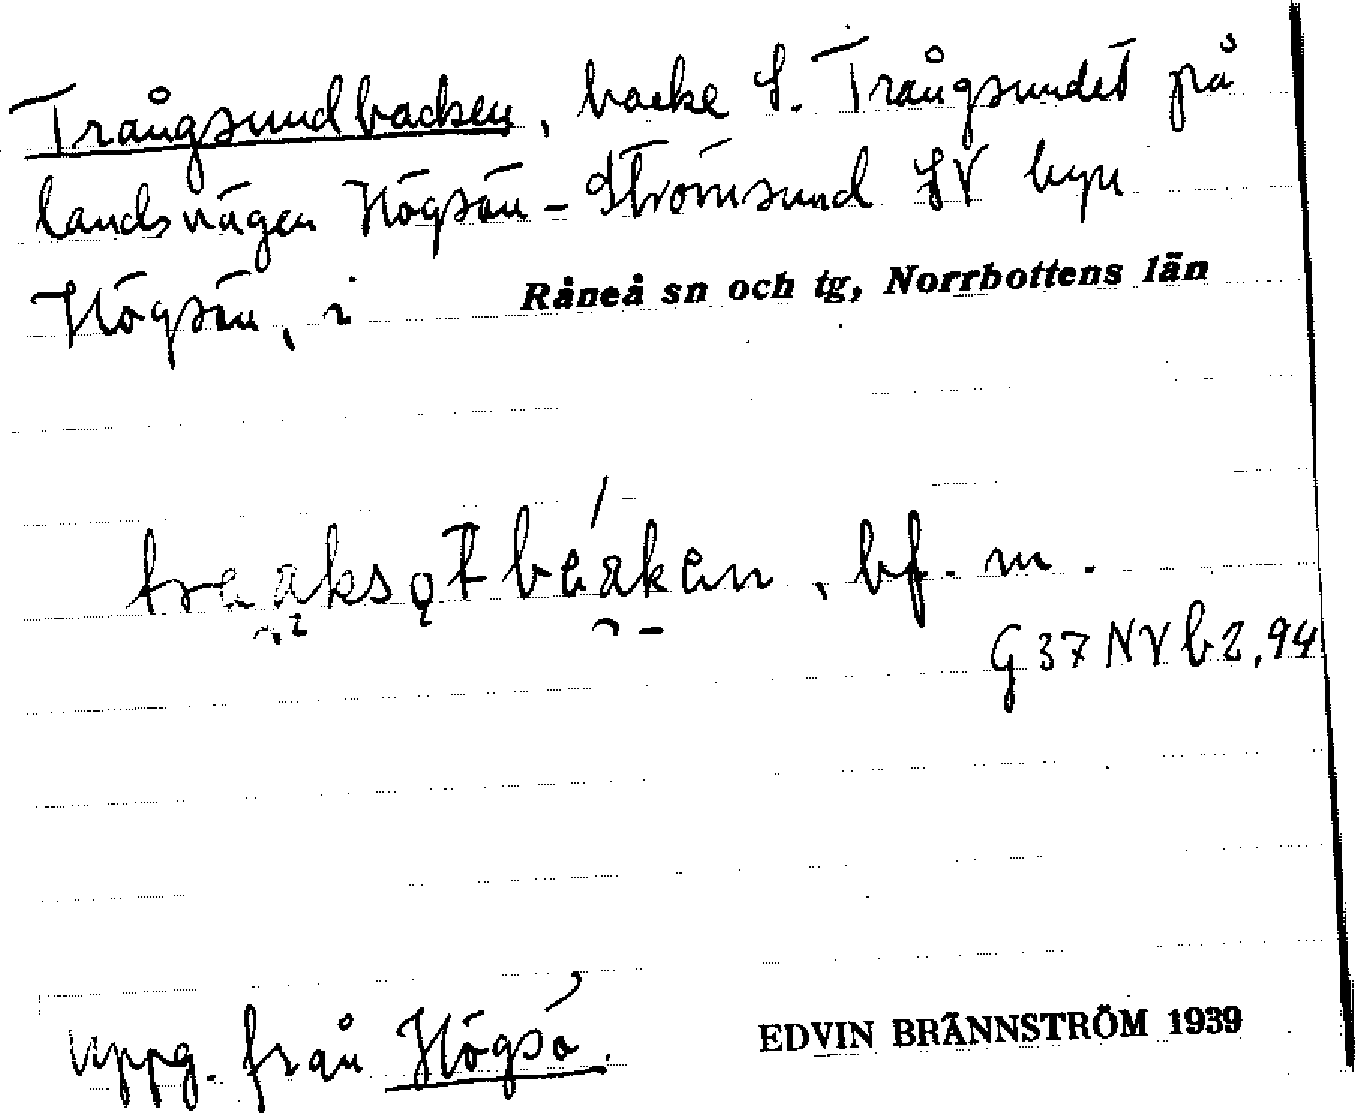 Trångsundbacken, backe S. Trångsundet på
landsvägen Högsön - Strömsund SV byn
Högsön, i Råneå sn och tg, Norrbottens län
bf. m.
G 37 NV b 2, 94
Uppg. från Högsö.
EDVIN BRÄNNSTRÖM 1939